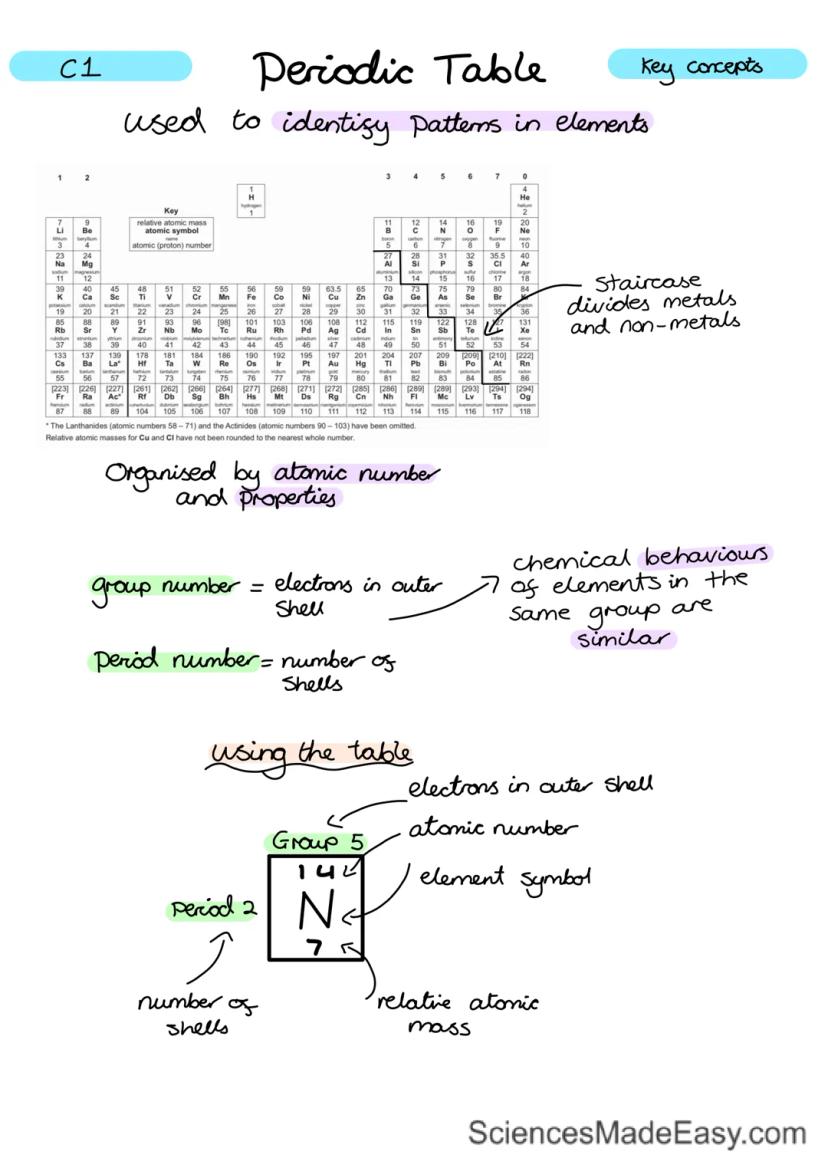 C1
Periodic Table
Key concepts
used to identify patterns in elements
1 2 3 4 5 6 7 0
1 4
H He
hydrogen helium
1 2
Key
relative atomic mass
atomic symbol
name
atomic (proton) number
7 9 11 12 14 16 19 20
Li Be B C N O F Ne
lithium beryllium boron carbon nitrogen oxygen fluorine neon
3 4 5 6 7 8 9 10
23 24 27 28 31 32 35.5 40
Na Mg Al Si P S Cl Ar
sodium magnesium aluminium silicon phosphorus sulfur chlorine argon
11 12 13 14 15 16 17 18
39 40 45 48 51 52 55 56 59 59 63.5 65 70 73 75 79 80 84
K Ca Sc Ti V Cr Mn Fe Co Ni Cu Zn Ga Ge As Se Br Kr
potassium calcium scandium titanium vanadium chromium manganese iron cobalt nickel copper zinc gallium germanium arsenic selenium bromine krypton
19 20 21 22 23 24 25 26 27 28 29 30 31 32 33 34 35 36
85 88 89 91 93 96 [98] 101 103 106 108 112 115 119 122 128 127 131
Rb Sr Y Zr Nb Mo Tc Ru Rh Pd Ag Cd In Sn Sb Te I Xe
rubidium strontium yttrium zirconium niobium molybdenum technetium ruthenium rhodium palladium silver cadmium indium tin antimony tellurium iodine xenon
37 38 39 40 41 42 43 44 45 46 47 48 49 50 51 52 53 54
133 137 139 178 181 184 186 190 192 195 197 201 204 207 209 [209] [210] [222]
Cs Ba La* Hf Ta W Re Os Ir Pt Au Hg Tl Pb Bi Po At Rn
caesium barium lanthanum hafnium tantalum tungsten rhenium osmium iridium platinum gold mercury thallium lead bismuth polonium astatine radon
55 56 57 72 73 74 75 76 77 78 79 80 81 82 83 84 85 86
[223] [226] [227] [261] [262] [266] [264] [277] [268] [271] [272] [285] [286] [289] [289] [293] [294] [294]
Fr Ra Ac* Rf Db Sg Bh Hs Mt Ds Rg Cn Nh Fl Mc Lv Ts Og
87 88 89 104 105 106 107 108 109 110 111 112 113 114 115 116 117 118
* The Lanthanides (atomic numbers 58 – 71) and the Actinides (atomic numbers 90 – 103) have been omitted.
Relative atomic masses for Cu and Cl have not been rounded to the nearest whole number.
Staircase
divides metals
and non-metals
Organised by atomic number
and properties
group number = electrons in outer
shell
chemical behaviours
of elements in the
same group are
similar
period number = number of
shells
using the table
electrons in outer shell
Group 5
atomic number
14
element symbol
Period 2
N
7
number of
shells
relative atomic
mass
SciencesMadeEasy.com